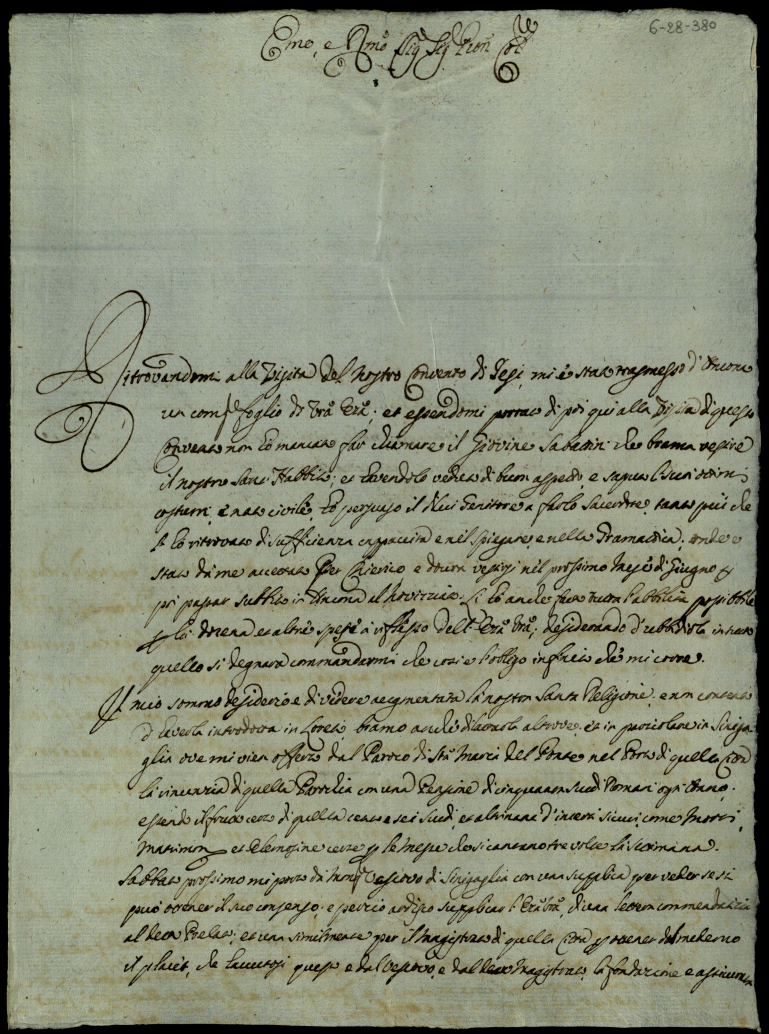 6-28-380
Emo, e Rmo Sig Sig Pron Col
Ritrovandomi alla Visita del Nostro Convento di Jesi, mi è stato trasmesso d'Ancona
un foglio di Vra Emza; et essendomi portato di poi qui alla Visita di questo
Convento non ho mancato far chiamare il Giovine Sabatini che brama vestire
il nostro Santo Habbito; et havendolo veduto di buon aspetto, e saputo li suoi ottimi
costumi, e nato civile, ho persuaso il di lui Genitore a farlo Sacerdote tanto più che
l'ho ritrovato di sufficienza cappacità e nel spiegare, e nella Gramatica; onde è
stato da me accettato per Chierico e dovrà vestirsi nel prossimo Mese di Giugno e
poi passar subbito in Ancona al Noviziato. Li ho anche fatto tutta l'abbilità possibbile
la dozena et altre spese a riflesso dell' Emza Vra; desiderando d'ubbidirla in tutto
quello si degnarà commandarmi che così è l'obligo infinito che mi corre.
Il mio sommo desiderio è di vedere augmentata la nostra Santa Religione, e non contento
d'haverla introdotta in Loreto, bramo anche dilatarla altrove, et in particolare in Siniga
glia ove mi vien offerto dal Paroco di Sta Maria del Ponte nel Porto di quella Città
la rinunzia di quella Parochia con una Penzione di cinquanta scudi Romani ogni Anno,
essendo il frutto certo di quella cento e sei scudi, et altri d'incerti sicuri, come Morti,
Matrimonii et Elemosine certe p le Messe che si cantano tre volte la settimana.
Sabbato prossimo mi porto da Monsr Vescovo di Sinigaglia con una supplica per veder se si
può ottener il suo consenso, e perciò ardisco supplicar l'Emza Vra, di una lettera commendatizia
al detto Prelato, et una similmente per il Magistrato di quella Città p ottener dal medemo
il placet, che havutosi questo e dal Vescovo, e dal detto Magistrato, la fondazione è assicurata